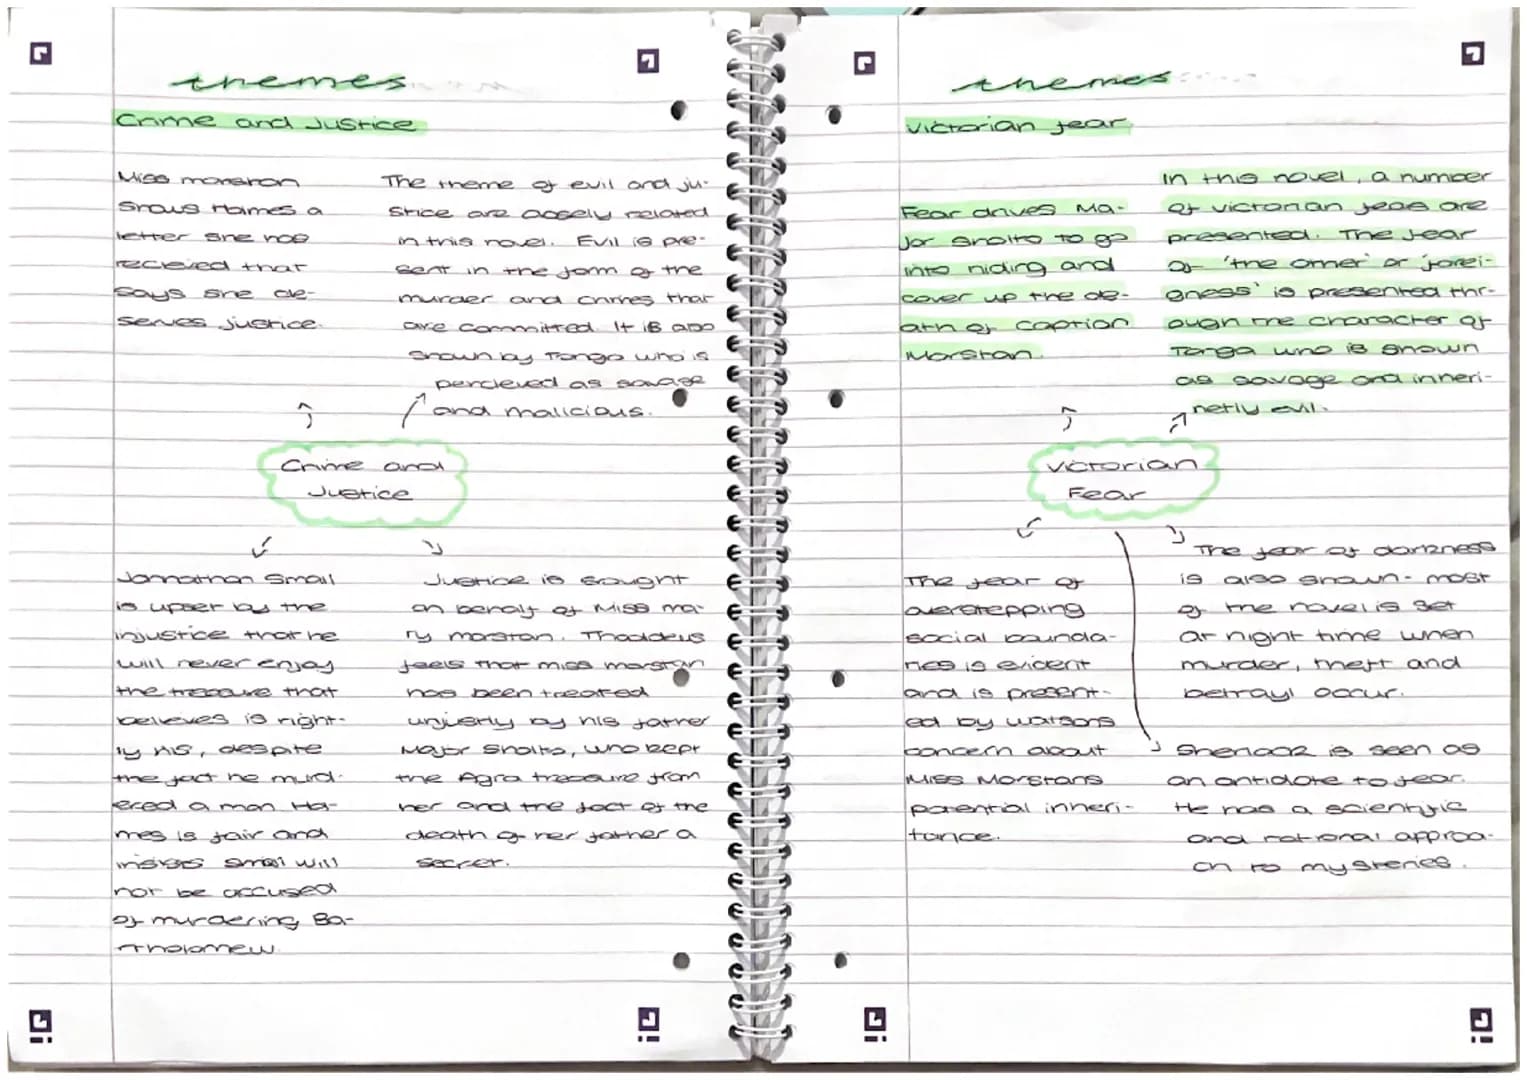 themes
Crime and Justice
Miss morston
shows Homes a
letter she has
recieved that
says she de-
serves justice.
The theme of evil and ju-
stice are closely related
in this novel. Evil is pre-
sent in the form of the
murder and crimes that
are committed. It is also
shown by Tonga who is
percieved as savage
and malicious.
Crime and
Justice
Jonnathan Small
is upset by the
injustice that he
will never enjoy
the treasure that
believes is right-
ly his, despite
the fact he murd-
ered a man. Ho-
mes is fair and
insists small will
not be accused
of murdering Ba-
rtholomew.
Justice is sought
on behalf of Miss ma-
ry morstan. Thaddeus
feels that miss morstan
has been treated
unjustly by his father
Major Sholto, who kept
the Agra treasure from
her and the fact of the
death of her father a
secret.
themes
Victorian fear
Fear drives Ma-
jor Sholto to go
into hiding and
cover up the de-
ath of Caption
Morstan.
In this novel, a number
of victorian fears are
presented. The fear
of 'the other' or 'forei-
gness' is presented thr-
ough the character of
Tonga who is shown
as savage and inheri-
netly evil.
Victorian
Fear
The fear of
overstepping
social bounda-
ries is evident
and is present-
ed by watsons
concern about
Miss Morstans
potential inheri-
tance.
The fear of darkness
is also shown - most
of the novel is set
at night time when
murder, theft and
betrayl occur.
Sherlock is seen as
an antidote to fear.
He has a scientific
and rational approa-
ch to mysteries.